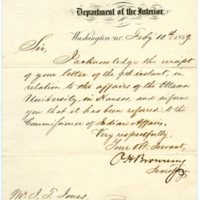 Department of the Interior,
Washington D.C. Feby 10th 1869.
Sir,
I acknowledge the receipt
of your letter of the 9th instant, in
relation to the affairs of the Ottawa
University, in Kansas, and inform
you that it has been referred to the
Commissioner of Indian Affairs.
Very respectfully,
Your Obt. Servant,
O. H. Browning
Secretary
Mr. J. T. Jones